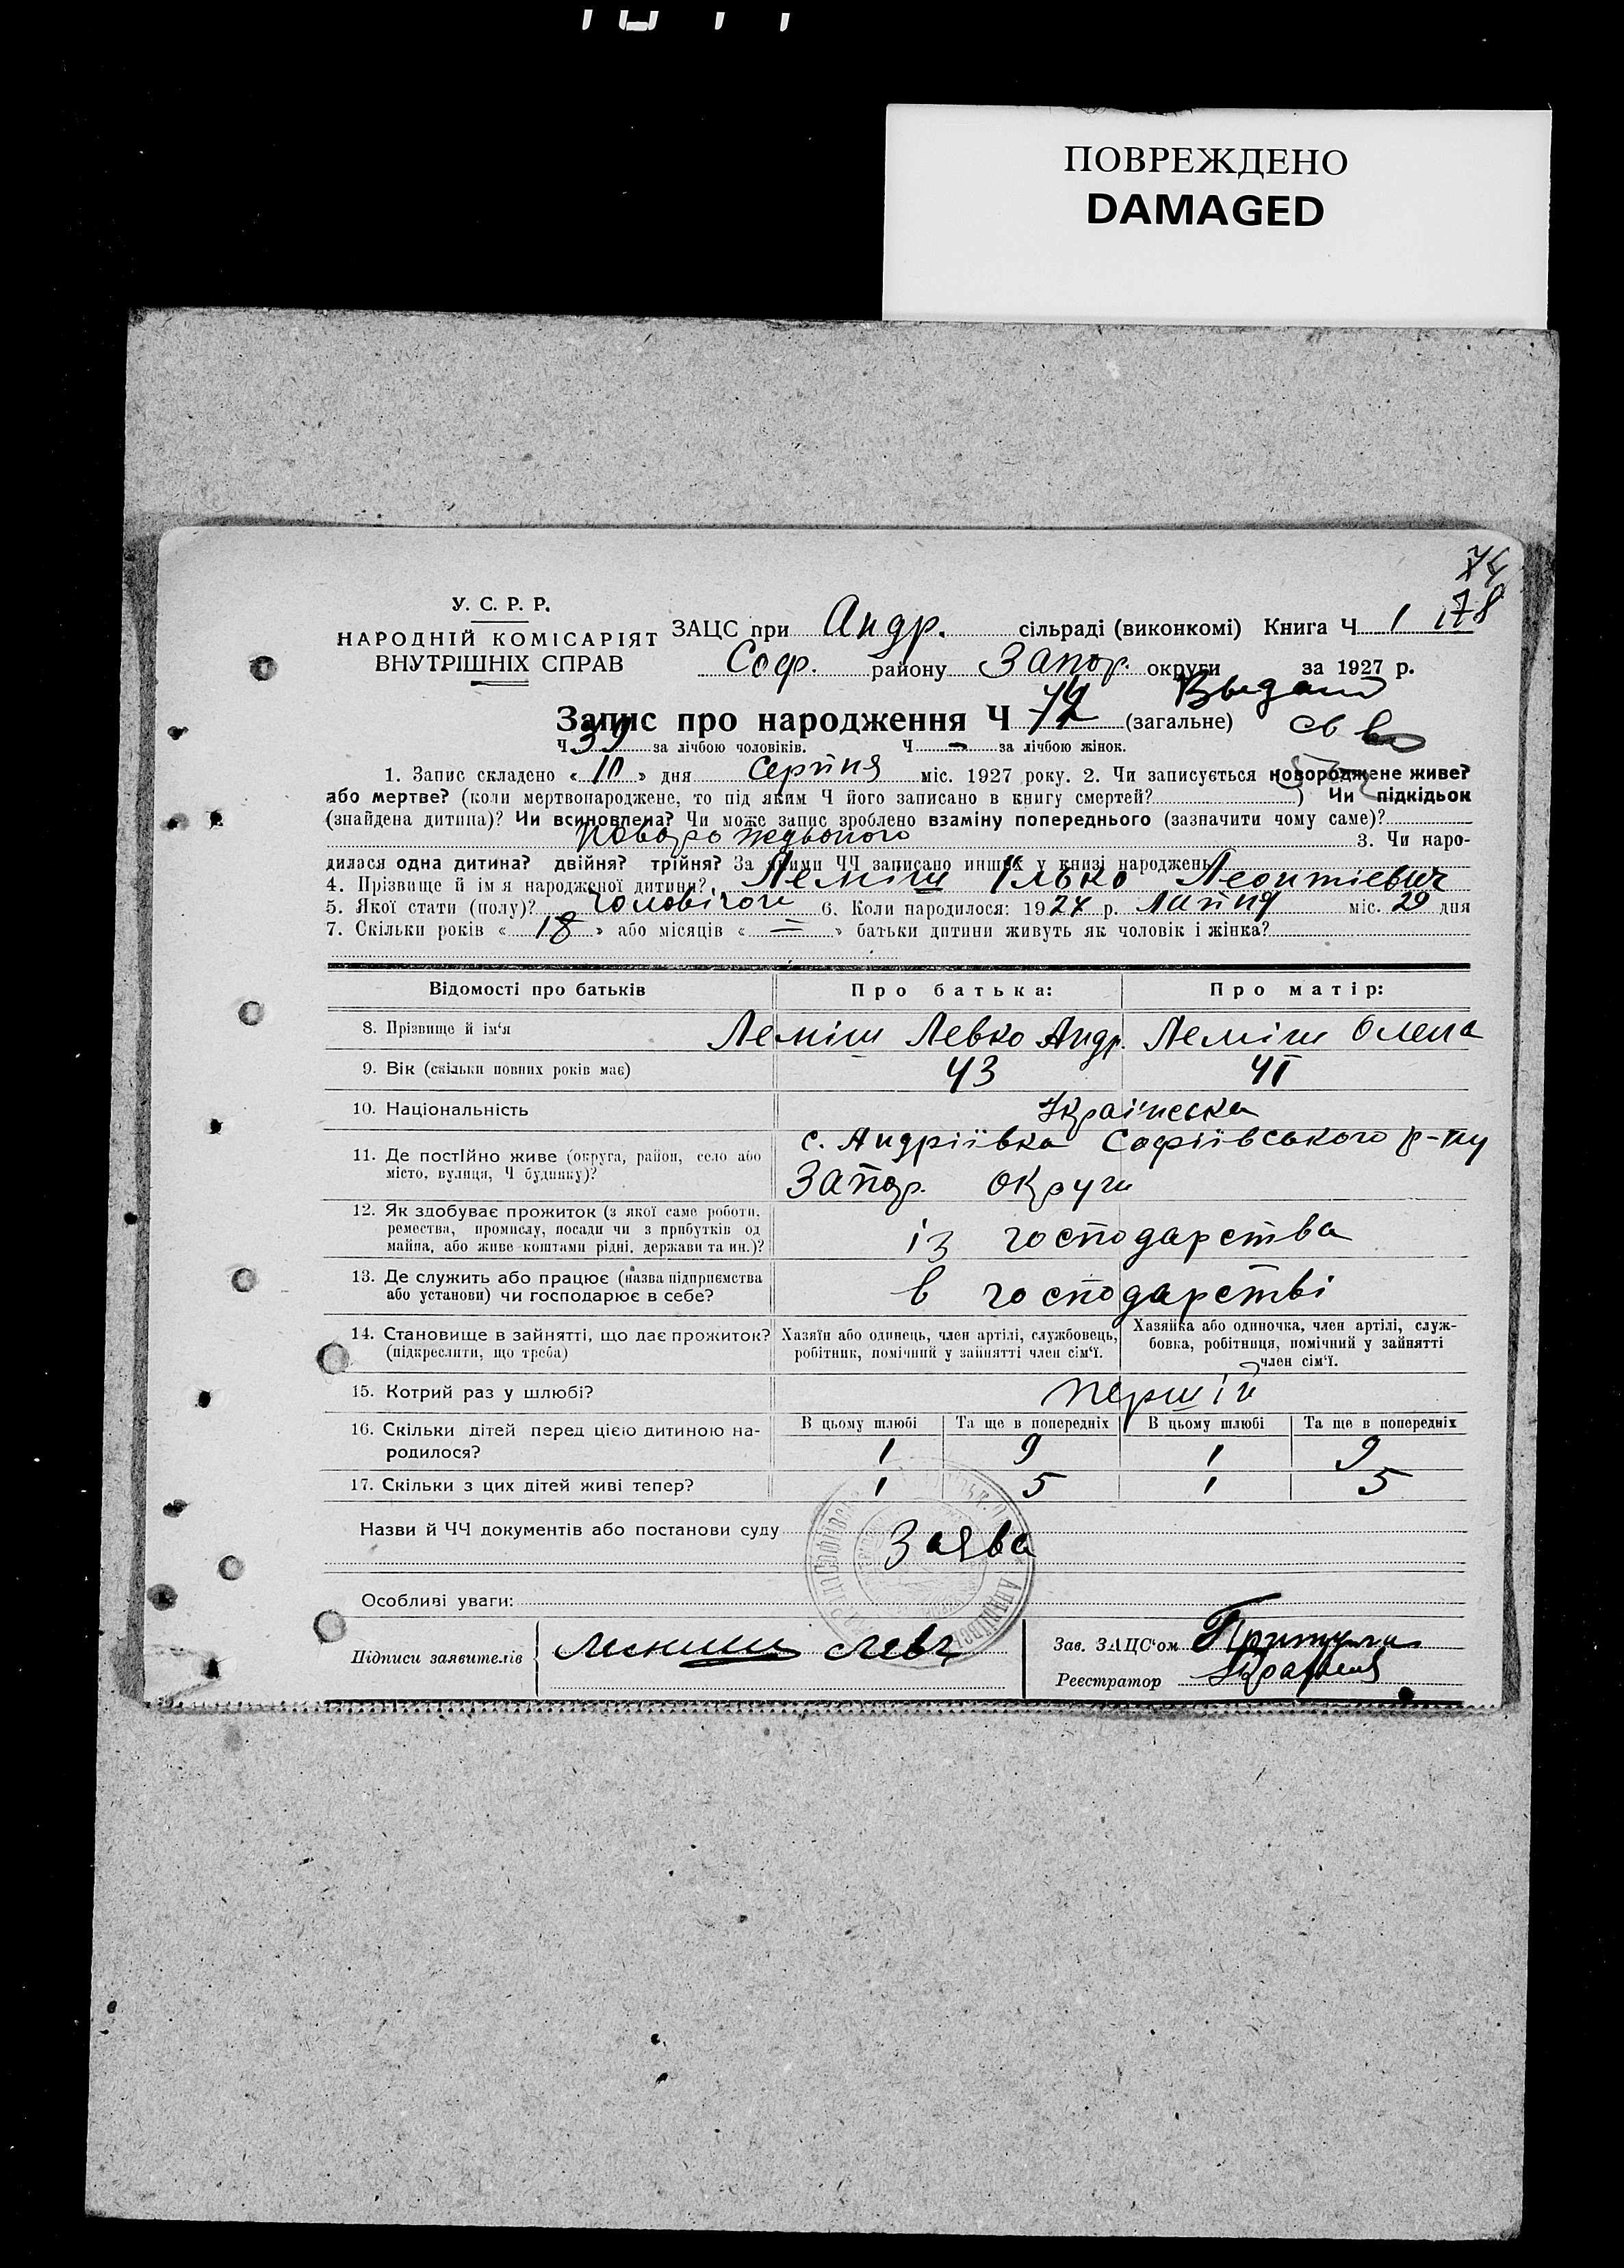 ПОВРЕЖДЕНО
DAMAGED
78
У. С. Р. Р.
НАРОДНІЙ КОМІСАРІЯТ
ВНУТРІШНІХ СПРАВ
ЗАЦС при Андр. сільраді (виконкомі) Книга Ч 1
Соф. району Запор. округи за 1927 р.
Запис про народження Ч 74 (загальне)
Ч 39 за лічбою чоловіків. Ч - за лічбою жінок.
1. Запис складено « 10 » дня Серпня міс. 1927 року. 2. Чи записується новороджене живе?
або мертве? (коли мертвонароджене, то під яким Ч його записано в книгу смертей? ) Чи підкідьок
(знайдена дитина)? Чи всиновлена? Чи може запис зроблено взаміну попереднього (зазначити чому саме)?
3. Чи наро-
дилася одна дитина? двійня? трійня? За якими ЧЧ записано инших у книзі народжень
4. Прізвище й ім'я народженої дитини? Леміш Ілько Леонтіевич
5. Якої стати (полу)? 6. Коли народилося: 1927 р. Липня міс. 29 дня
7. Скільки років « 18 » або місяців « = » батьки дитини живуть як чоловік і жінка?
Відомості про батьків Про батька: Про матір:
8. Прізвище й ім'я Леміш Левко Андр. Леміш Олена
9. Вік (скільки повних років має) 43 41
10. Національність Українська
11. Де постійно живе (округа, район, село або
місто, вулиця, Ч будинку)?
с. Андріївка Софіівського р-ну
Запор. округи
12. Як здобуває прожиток (з якої саме роботи,
ремества, промислу, посади чи з прибутків од
майна, або живе коштами рідні, держави та ин.)?
із господарства
13. Де служить або працює (назва підприємства
або установи) чи господарює в себе?
в господарстві
14. Становище в зайнятті, що дає прожиток?
(підкреслити, що треба)
Хазяїн або одинець, член артілі, службовець,
робітник, помічний у зайнятті член сім'ї.
Хазяйка або одиночка, член артілі, служ-
бовка, робітниця, помічний у зайнятті
член сім'ї.
15. Котрий раз у шлюбі? першій
В цьому шлюбі Та ще в попередніх В цьому шлюбі Та ще в попередніх
16. Скільки дітей перед цією дитиною на-
родилося?
1 9 1 9
17. Скільки з цих дітей живі тепер? 1 5 1 5
Назви й ЧЧ документів або постанови суду Заява
Особливі уваги:
Підписи заявителів
Зав. ЗАЦС'ом Притула
Реєстратор